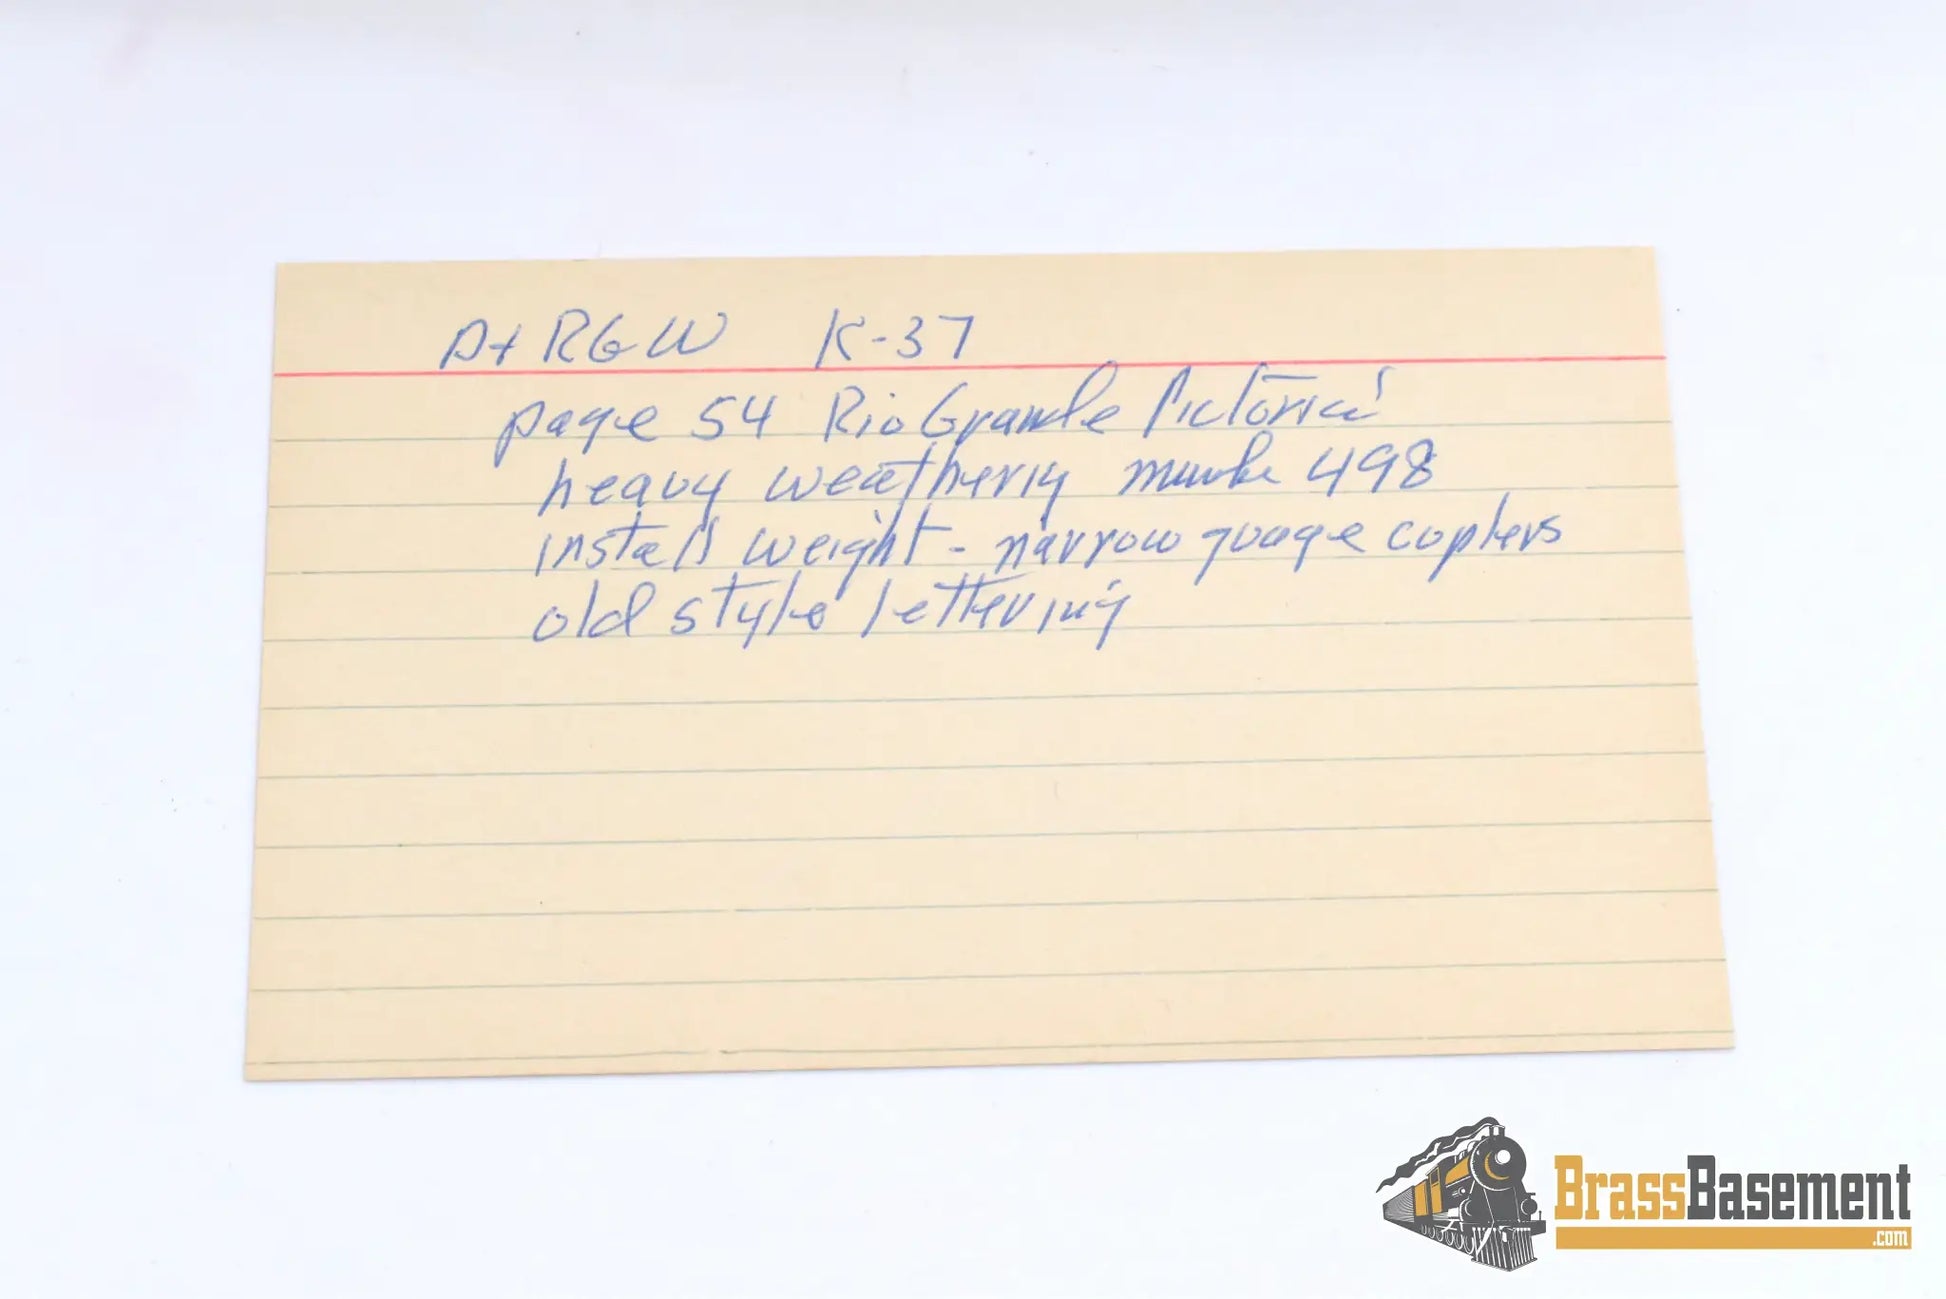 D+RGW K-37
page 54 Rio Grande Pictorial
heavy weatheriy 498
install weight - narrow guage coplers
old style lettering
BrassBasement
.com